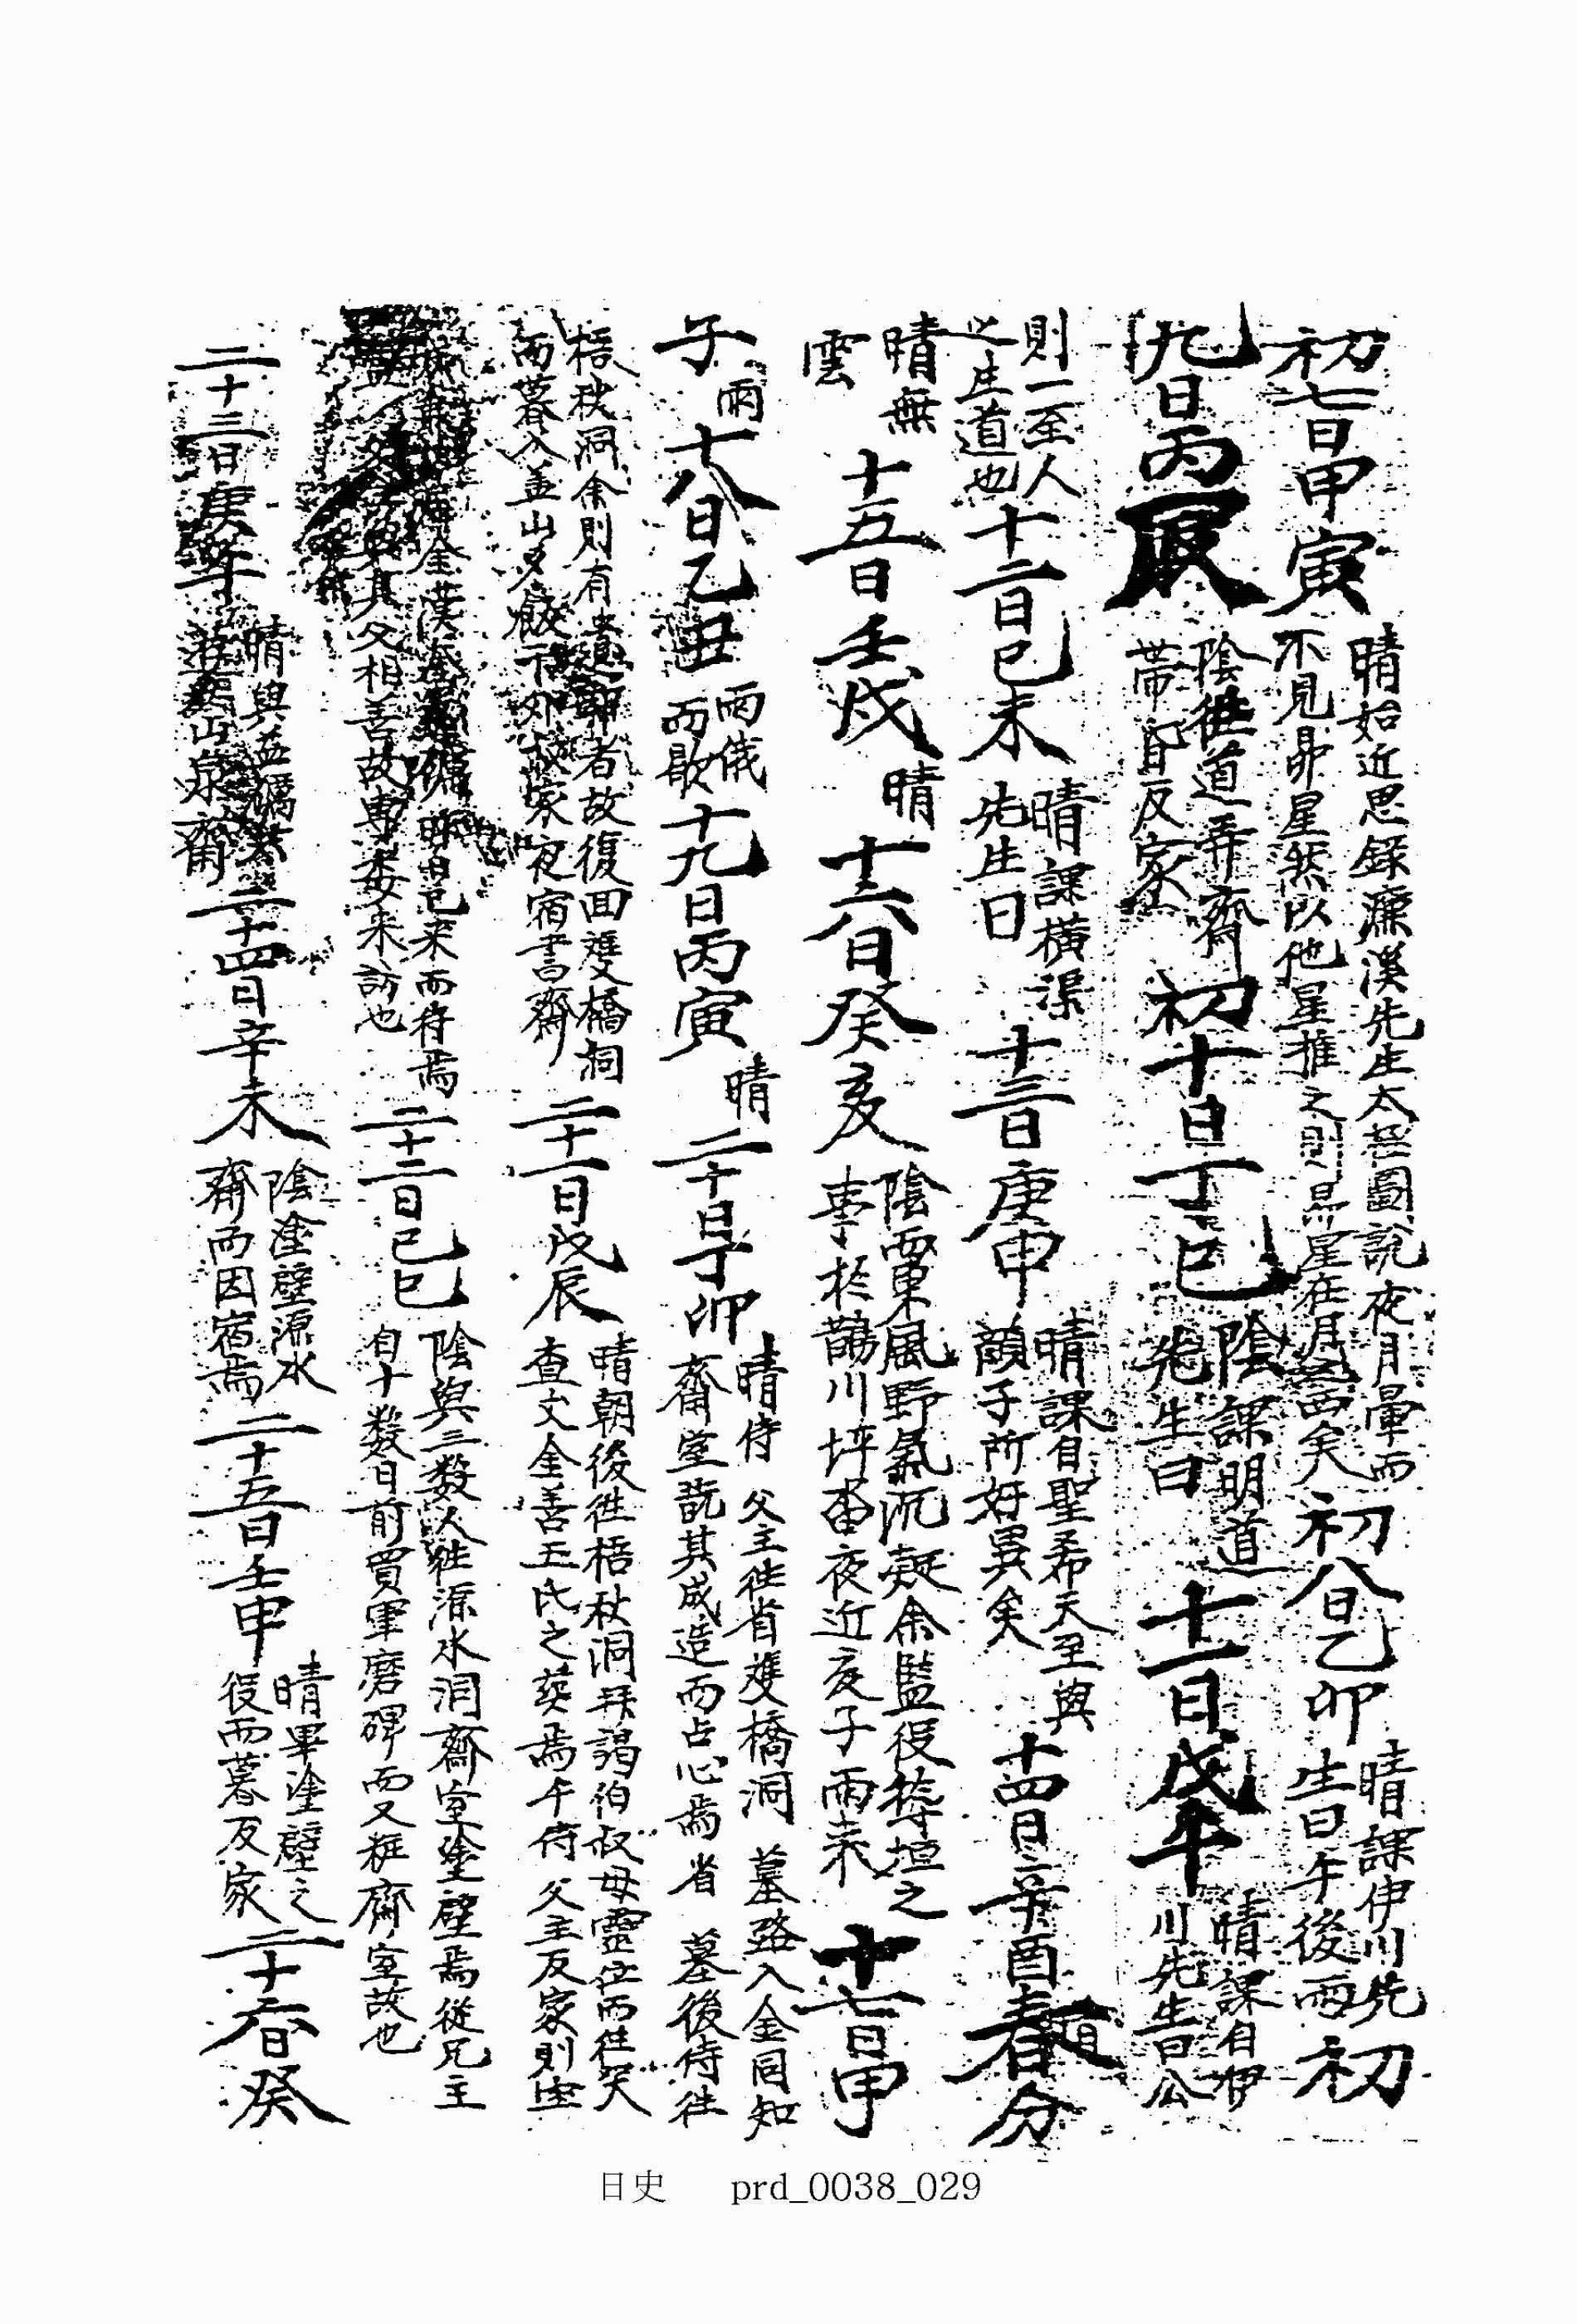 初七日甲寅 晴始近思錄濂溪先生太極圖說夜月暈而
不見昴星然以他星推之則昴星在月西矣 初八日乙卯 晴課伊川先
生曰午後雨 初
九日丙寅 陰往道弄齋
帶昏反家 初十日丁巳 陰課明道
先生曰 十一日戊午 晴課自伊
川先生曰公
則一至人
之生道也 十二日己未 晴課橫渠
先生曰 十三日庚申 晴課自聖希天至與
顏子所好異矣 十四日辛酉春分
晴無
雲 十五日壬戌 晴 十六日癸亥 陰而東風野氣沉凝余監役垣之
事於鵲川坪畓夜近亥子雨来 十七日甲
子 雨 十八日乙丑 雨俄
而歇 十九日丙寅 晴 二十日丁卯 晴侍 父主往省雙橋洞 墓路入金同知
齋室翫其成造而占心焉省 墓後侍往
梧秋洞余則有者故復回雙橋洞
而暮入並山夕飯家夜宿書齋 二十一日戊辰 晴朝後往梧秋洞拜謁伯叔母靈位而往哭
查丈金善玉氏之葬焉午侍 父主反家則
金漢昨日已来而待焉
其父相善故專委来訪也 二十二日己巳 陰與三數人往源水洞齋室塗壁焉從兄主
自十數日前買軍磨碑而又在齋室故也
二十三日庚午 晴與益
山泉齋 二十四日辛未 陰塗壁源水
齋而因宿焉 二十五日壬申 晴畢塗壁之
役而暮反家 二十六日癸
日史 prd_0038_029